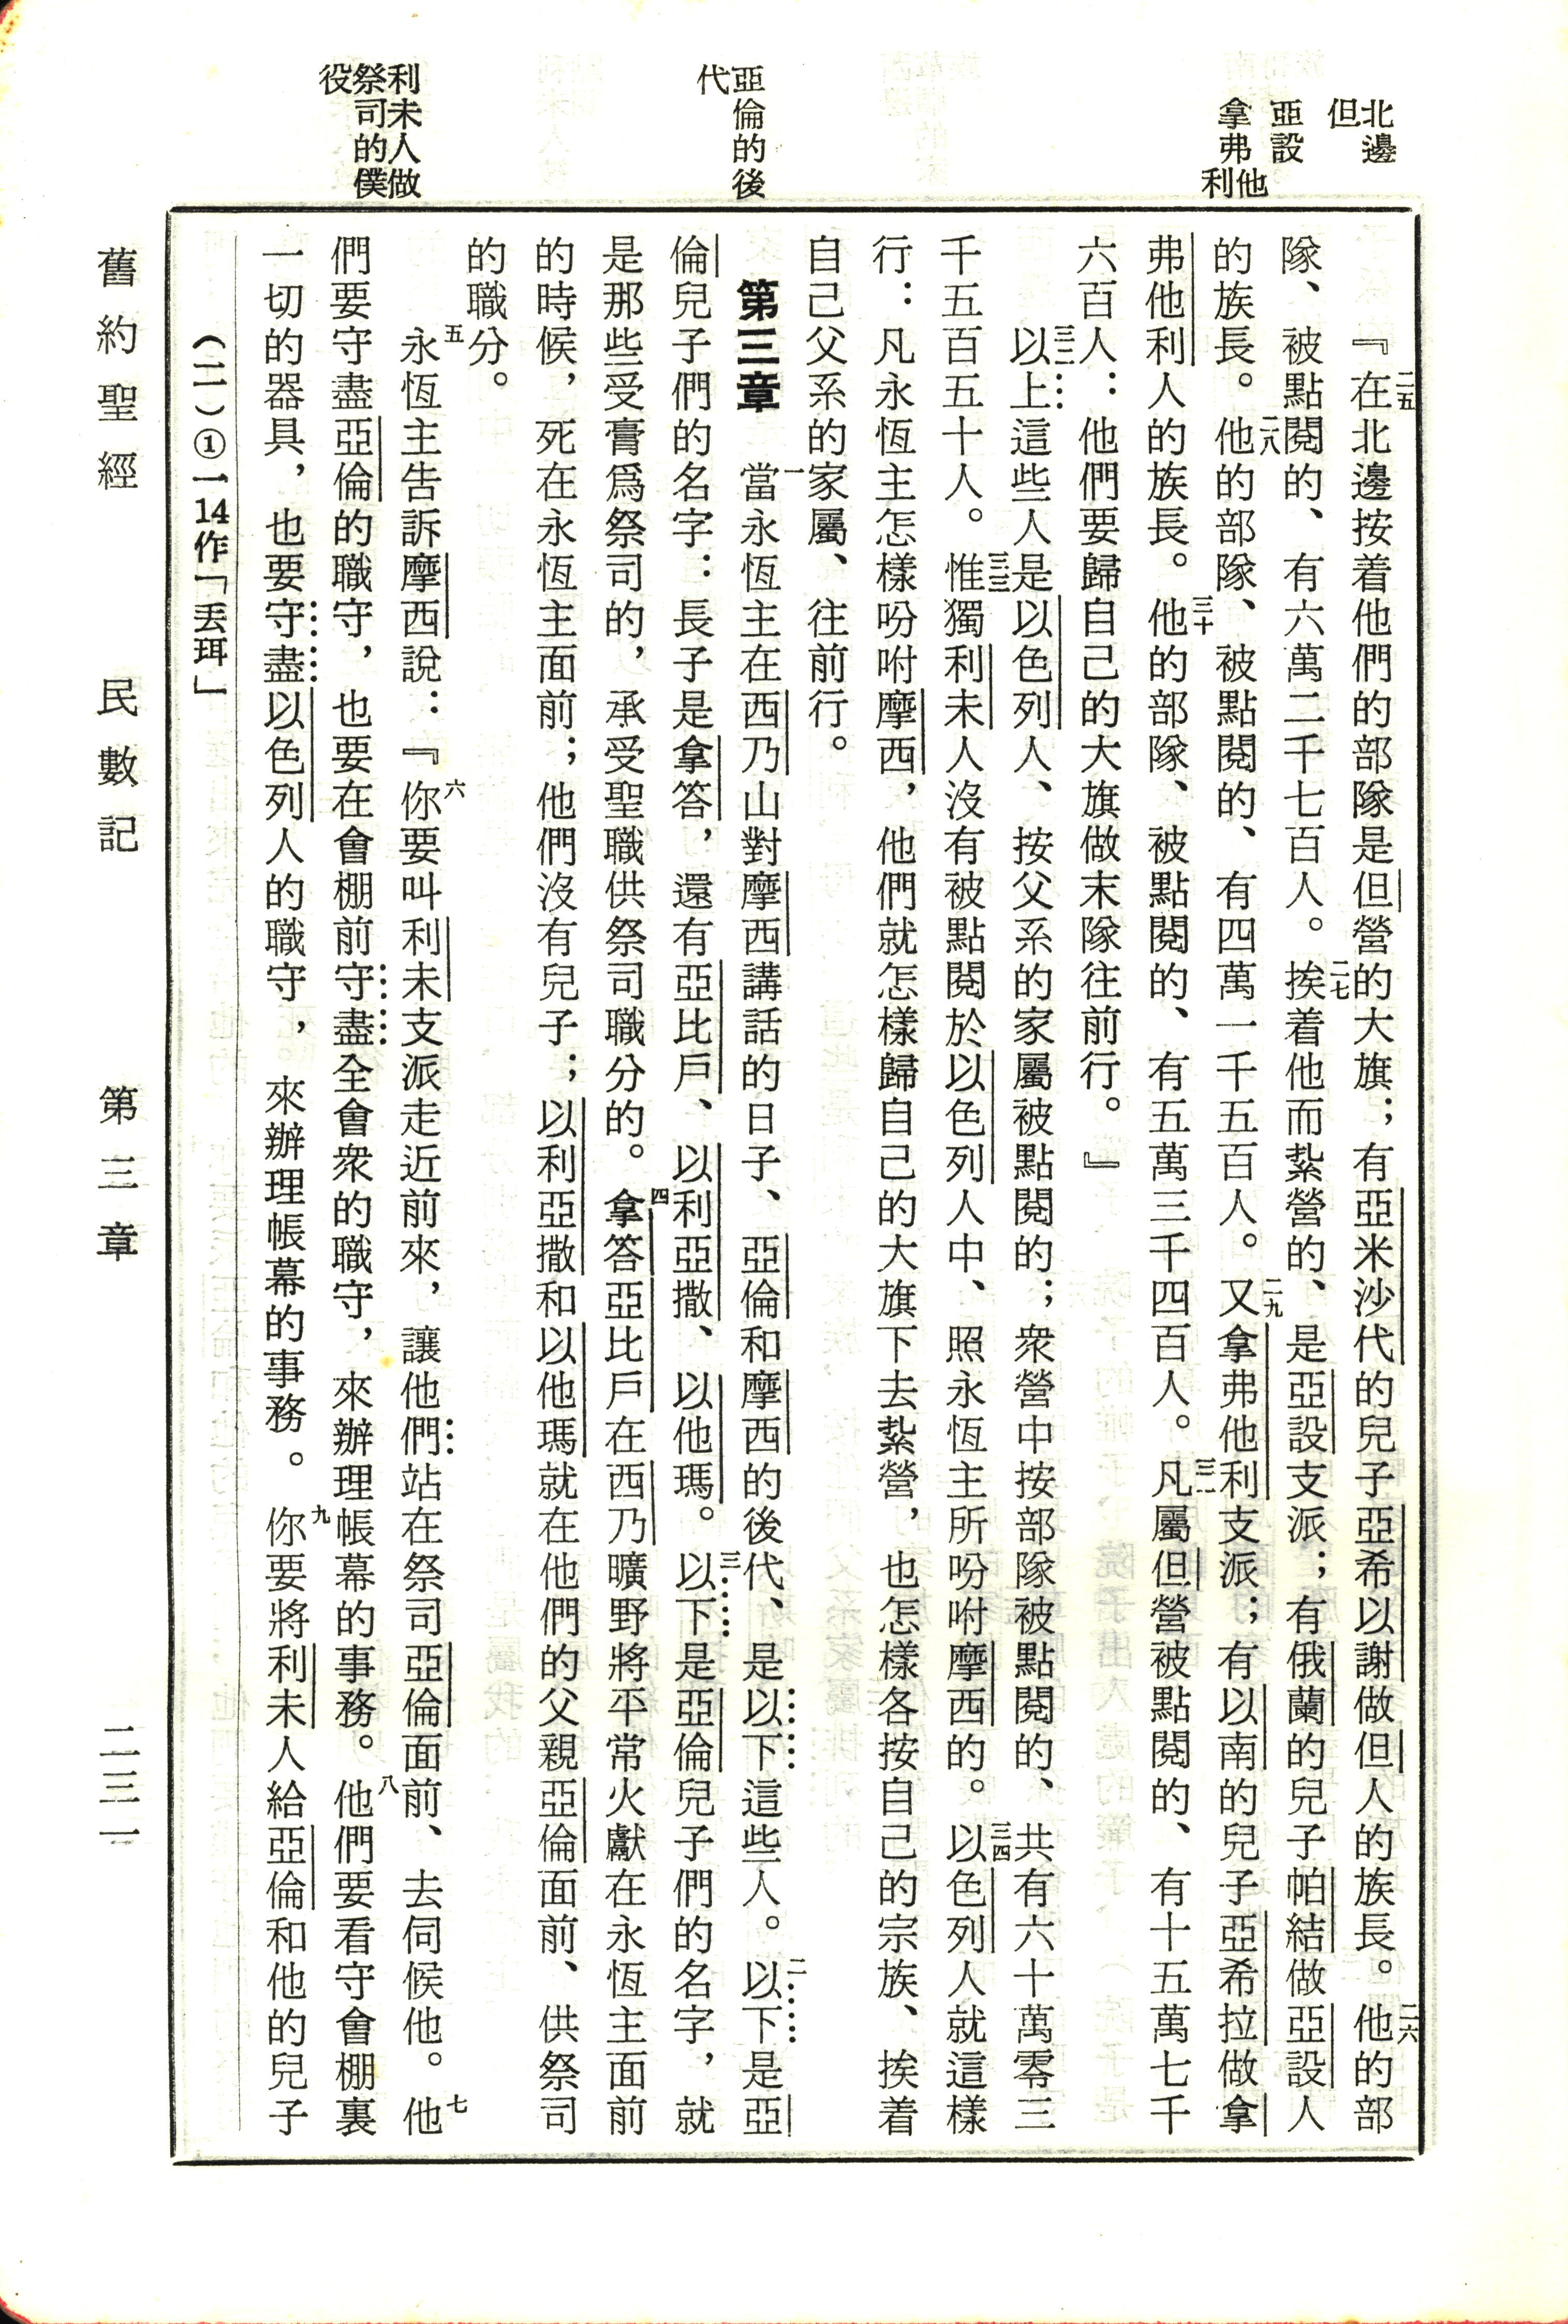 北邊
但
亞設
拿弗他
利
亞倫的後
代
利未人做
祭司的僕
役
二五『在北邊按着他們的部隊是但營的大旗；有亞米沙代的兒子亞希以謝做但人的族長。二六他的部
隊、被點閱的、有六萬二千七百人。二七挨着他而紮營的、是亞設支派；有俄蘭的兒子帕結做亞設人
的族長。二八他的部隊、被點閱的、有四萬一千五百人。二九又拿弗他利支派；有以南的兒子亞希拉做拿
弗他利人的族長。三十他的部隊、被點閱的、有五萬三千四百人。三一凡屬但營被點閱的、有十五萬七千
六百人：他們要歸自己的大旗做末隊往前行。』
三二以上這些人是以色列人、按父系的家屬被點閱的；衆營中按部隊被點閱的、共有六十萬零三
千五百五十人。三三惟獨利未人沒有被點閱於以色列人中、照永恆主所吩咐摩西的。三四以色列人就這樣
行：凡永恆主怎樣吩咐摩西，他們就怎樣歸自己的大旗下去紮營，也怎樣各按自己的宗族、挨着
自己父系的家屬、往前行。
第三章 一當永恆主在西乃山對摩西講話的日子、亞倫和摩西的後代、是以下這些人。二以下是亞
倫兒子們的名字：長子是拿答，還有亞比戶、以利亞撒、以他瑪。三以下是亞倫兒子們的名字，就
是那些受膏爲祭司的，承受聖職供祭司職分的。四拿答亞比戶在西乃曠野將平常火獻在永恆主面前
的時候，死在永恆主面前；他們沒有兒子；以利亞撒和以他瑪就在他們的父親亞倫面前、供祭司
的職分。
五永恆主告訴摩西說：六『你要叫利未支派走近前來，讓他們站在祭司亞倫面前、去伺候他。七他
們要守盡亞倫的職守，也要在會棚前守盡全會衆的職守，來辦理帳幕的事務。八他們要看守會棚裏
一切的器具，也要守盡以色列人的職守，來辦理帳幕的事務。九你要將利未人給亞倫和他的兒子
（二）①一14作「丟珥」
舊約聖經　民數記　第三章　二三一